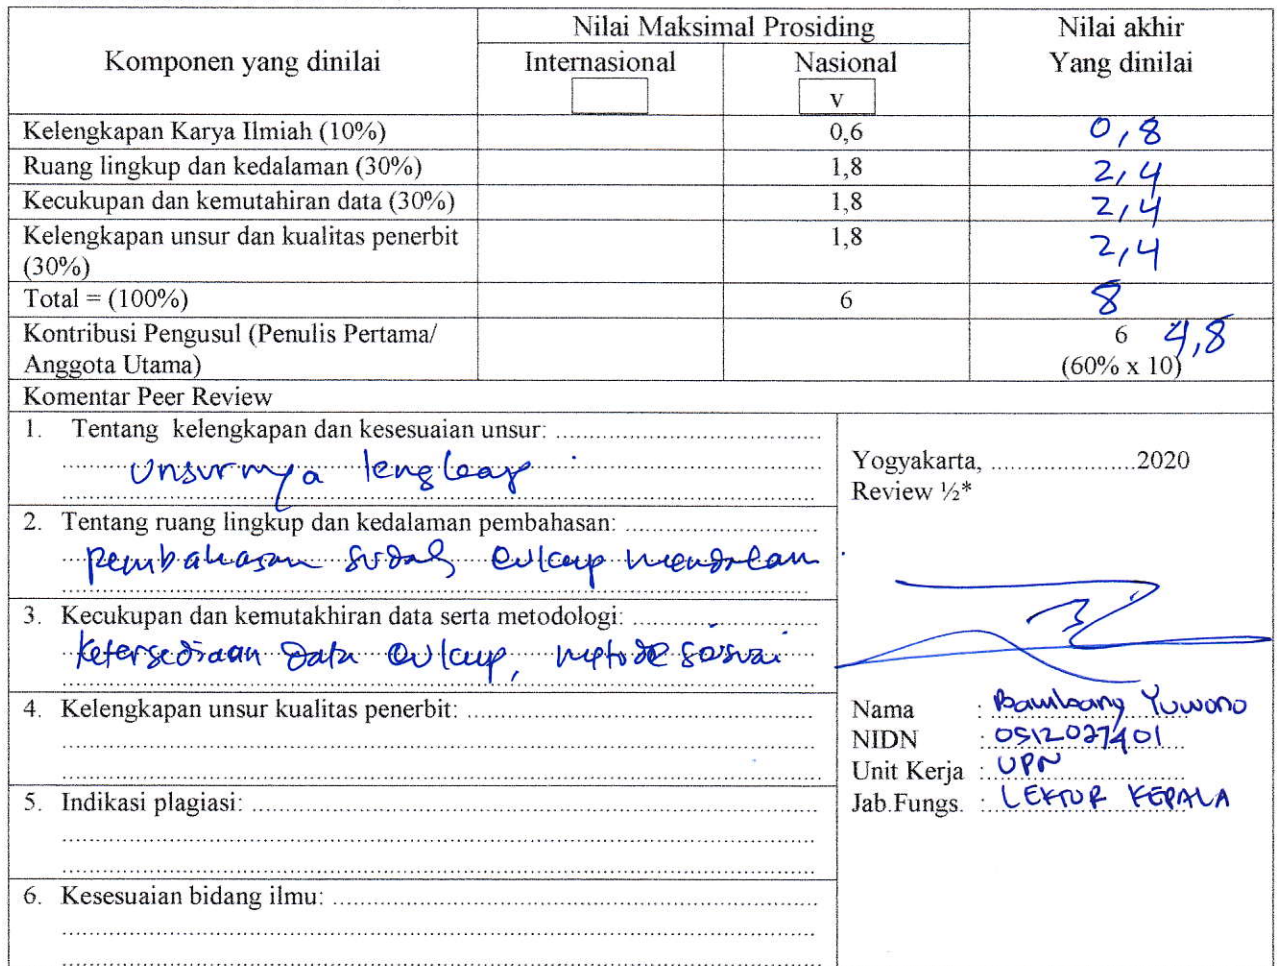 Komponen yang dinilai
Nilai Maksimal Prosiding
Nilai akhir
Yang dinilai
Internasional
Nasional
v
Kelengkapan Karya Ilmiah (10%) 0,6 0,8
Ruang lingkup dan kedalaman (30%) 1,8 2,4
Kecukupan dan kemutahiran data (30%) 1,8 2,4
Kelengkapan unsur dan kualitas penerbit 1,8 2,4
(30%)
Total = (100%) 6 8
Kontribusi Pengusul (Penulis Pertama/ 6 4,8
Anggota Utama) (60% x 10)
Komentar Peer Review
1. Tentang kelengkapan dan kesesuaian unsur: ......................................
Unsurnya lengkap
2. Tentang ruang lingkup dan kedalaman pembahasan: ...........................
pembahasan sudah cukup mendalam.
3. Kecukupan dan kemutakhiran data serta metodologi: ..........................
Ketersediaan data cukup, metode sesuai
4. Kelengkapan unsur kualitas penerbit: .................................................
5. Indikasi plagiasi: ...............................................................................
6. Kesesuaian bidang ilmu: ....................................................................
Yogyakarta, ......................2020
Review ½*
Nama : Bambang Yuwono
NIDN : 0512027401
Unit Kerja : UPN
Jab.Fungs. : LEKTOR KEPALA